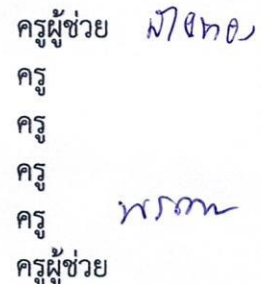 ครูผู้ช่วย
ครู
ครู
ครู
ครู
ครูผู้ช่วย